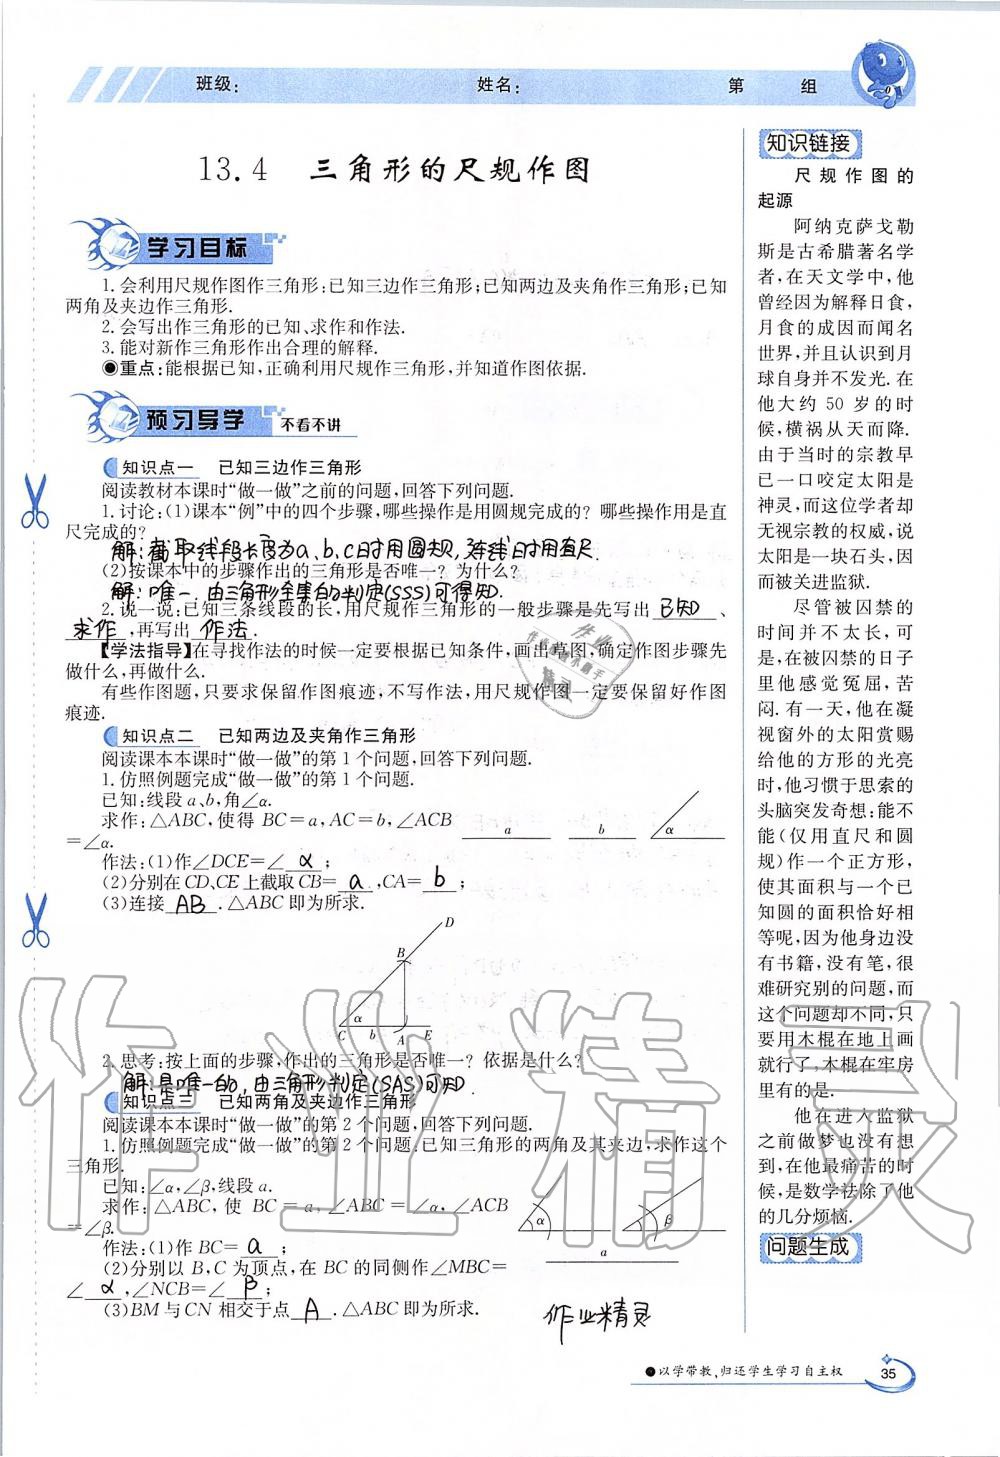 班级:
姓名:
第 组
13.4 三角形的尺规作图
学习目标
1. 会利用尺规作图作三角形;已知三边作三角形;已知两边及夹角作三角形;已知
两角及夹边作三角形.
2. 会写出作三角形的已知、求作和作法.
3. 能对新作三角形作出合理的解释.
●重点:能根据已知,正确利用尺规作三角形,并知道作图依据.
预习导学 不看不讲
知识点一 已知三边作三角形
阅读教材本课时“做一做”之前的问题,回答下列问题.
1. 讨论:(1)课本“例”中的四个步骤,哪些操作是用圆规完成的? 哪些操作用是直
尺完成的?
解:截取线段长度为a、b、c时用圆规,连线时用直尺.
(2)按课本中的步骤作出的三角形是否唯一? 为什么?
解:唯一.由三角形全等的判定(SSS)可得知.
2. 说一说:已知三条线段的长,用尺规作三角形的一般步骤是先写出 已知 、
求作 ,再写出 作法 .
【学法指导】在寻找作法的时候一定要根据已知条件,画出草图,确定作图步骤先
做什么,再做什么.
有些作图题,只要求保留作图痕迹,不写作法,用尺规作图一定要保留好作图
痕迹.
知识点二 已知两边及夹角作三角形
阅读课本本课时“做一做”的第 1 个问题,回答下列问题.
1. 仿照例题完成“做一做”的第 1 个问题.
已知:线段 a、b,角∠α.
求作:△ABC,使得 BC=a,AC=b,∠ACB
=∠α.
a b α
作法:(1)作∠DCE=∠ α ;
(2)分别在 CD、CE 上截取 CB= a ,CA= b ;
(3)连接 AB .△ABC 即为所求.
D
B
α
C b A E
2. 思考:按上面的步骤,作出的三角形是否唯一? 依据是什么?
解:是唯一的,由三角形判定(SAS)可知.
知识点三 已知两角及夹边作三角形
阅读课本本课时“做一做”的第 2 个问题,回答下列问题.
1. 仿照例题完成“做一做”的第 2 个问题:已知三角形的两角及其夹边,求作这个
三角形.
已知:∠α,∠β,线段 a.
求作:△ABC,使 BC=a,∠ABC=∠α,∠ACB
=∠β.
α β
a
作法:(1)作 BC= a ;
(2)分别以 B、C 为顶点,在 BC 的同侧作∠MBC=
∠ α ,∠NCB=∠ β ;
(3)BM 与 CN 相交于点 A .△ABC 即为所求.
作业精灵
知识链接
尺规作图的
起源
阿纳克萨戈勒
斯是古希腊著名学
者,在天文学中,他
曾经因为解释日食,
月食的成因而闻名
世界,并且认识到月
球自身并不发光. 在
他大约 50 岁的时
候,横祸从天而降.
由于当时的宗教早
已一口咬定太阳是
神灵,而这位学者却
无视宗教的权威,说
太阳是一块石头,因
而被关进监狱.
尽管被囚禁的
时间并不太长,可
在被囚禁的日子
里他感觉冤屈,苦
闷. 有一天,他在凝
视窗外的太阳赏赐
给他的方形的光亮
时,他习惯于思索的
头脑突发奇想:能不
能(仅用直尺和圆
规)作一个正方形,
使其面积与一个已
知圆的面积恰好相
等呢,因为他身边没
有书籍,没有笔,很
难研究别的问题,而
这个问题却不同,只
要用木棍在地上画
就行了,木棍在牢房
里有的是.
他在进入监狱
之前做梦也没有想
到,在他最痛苦的时
候,是数学祛除了他
的几分烦恼.
问题生成
●以学带教,归还学生学习自主权
35
作业精灵